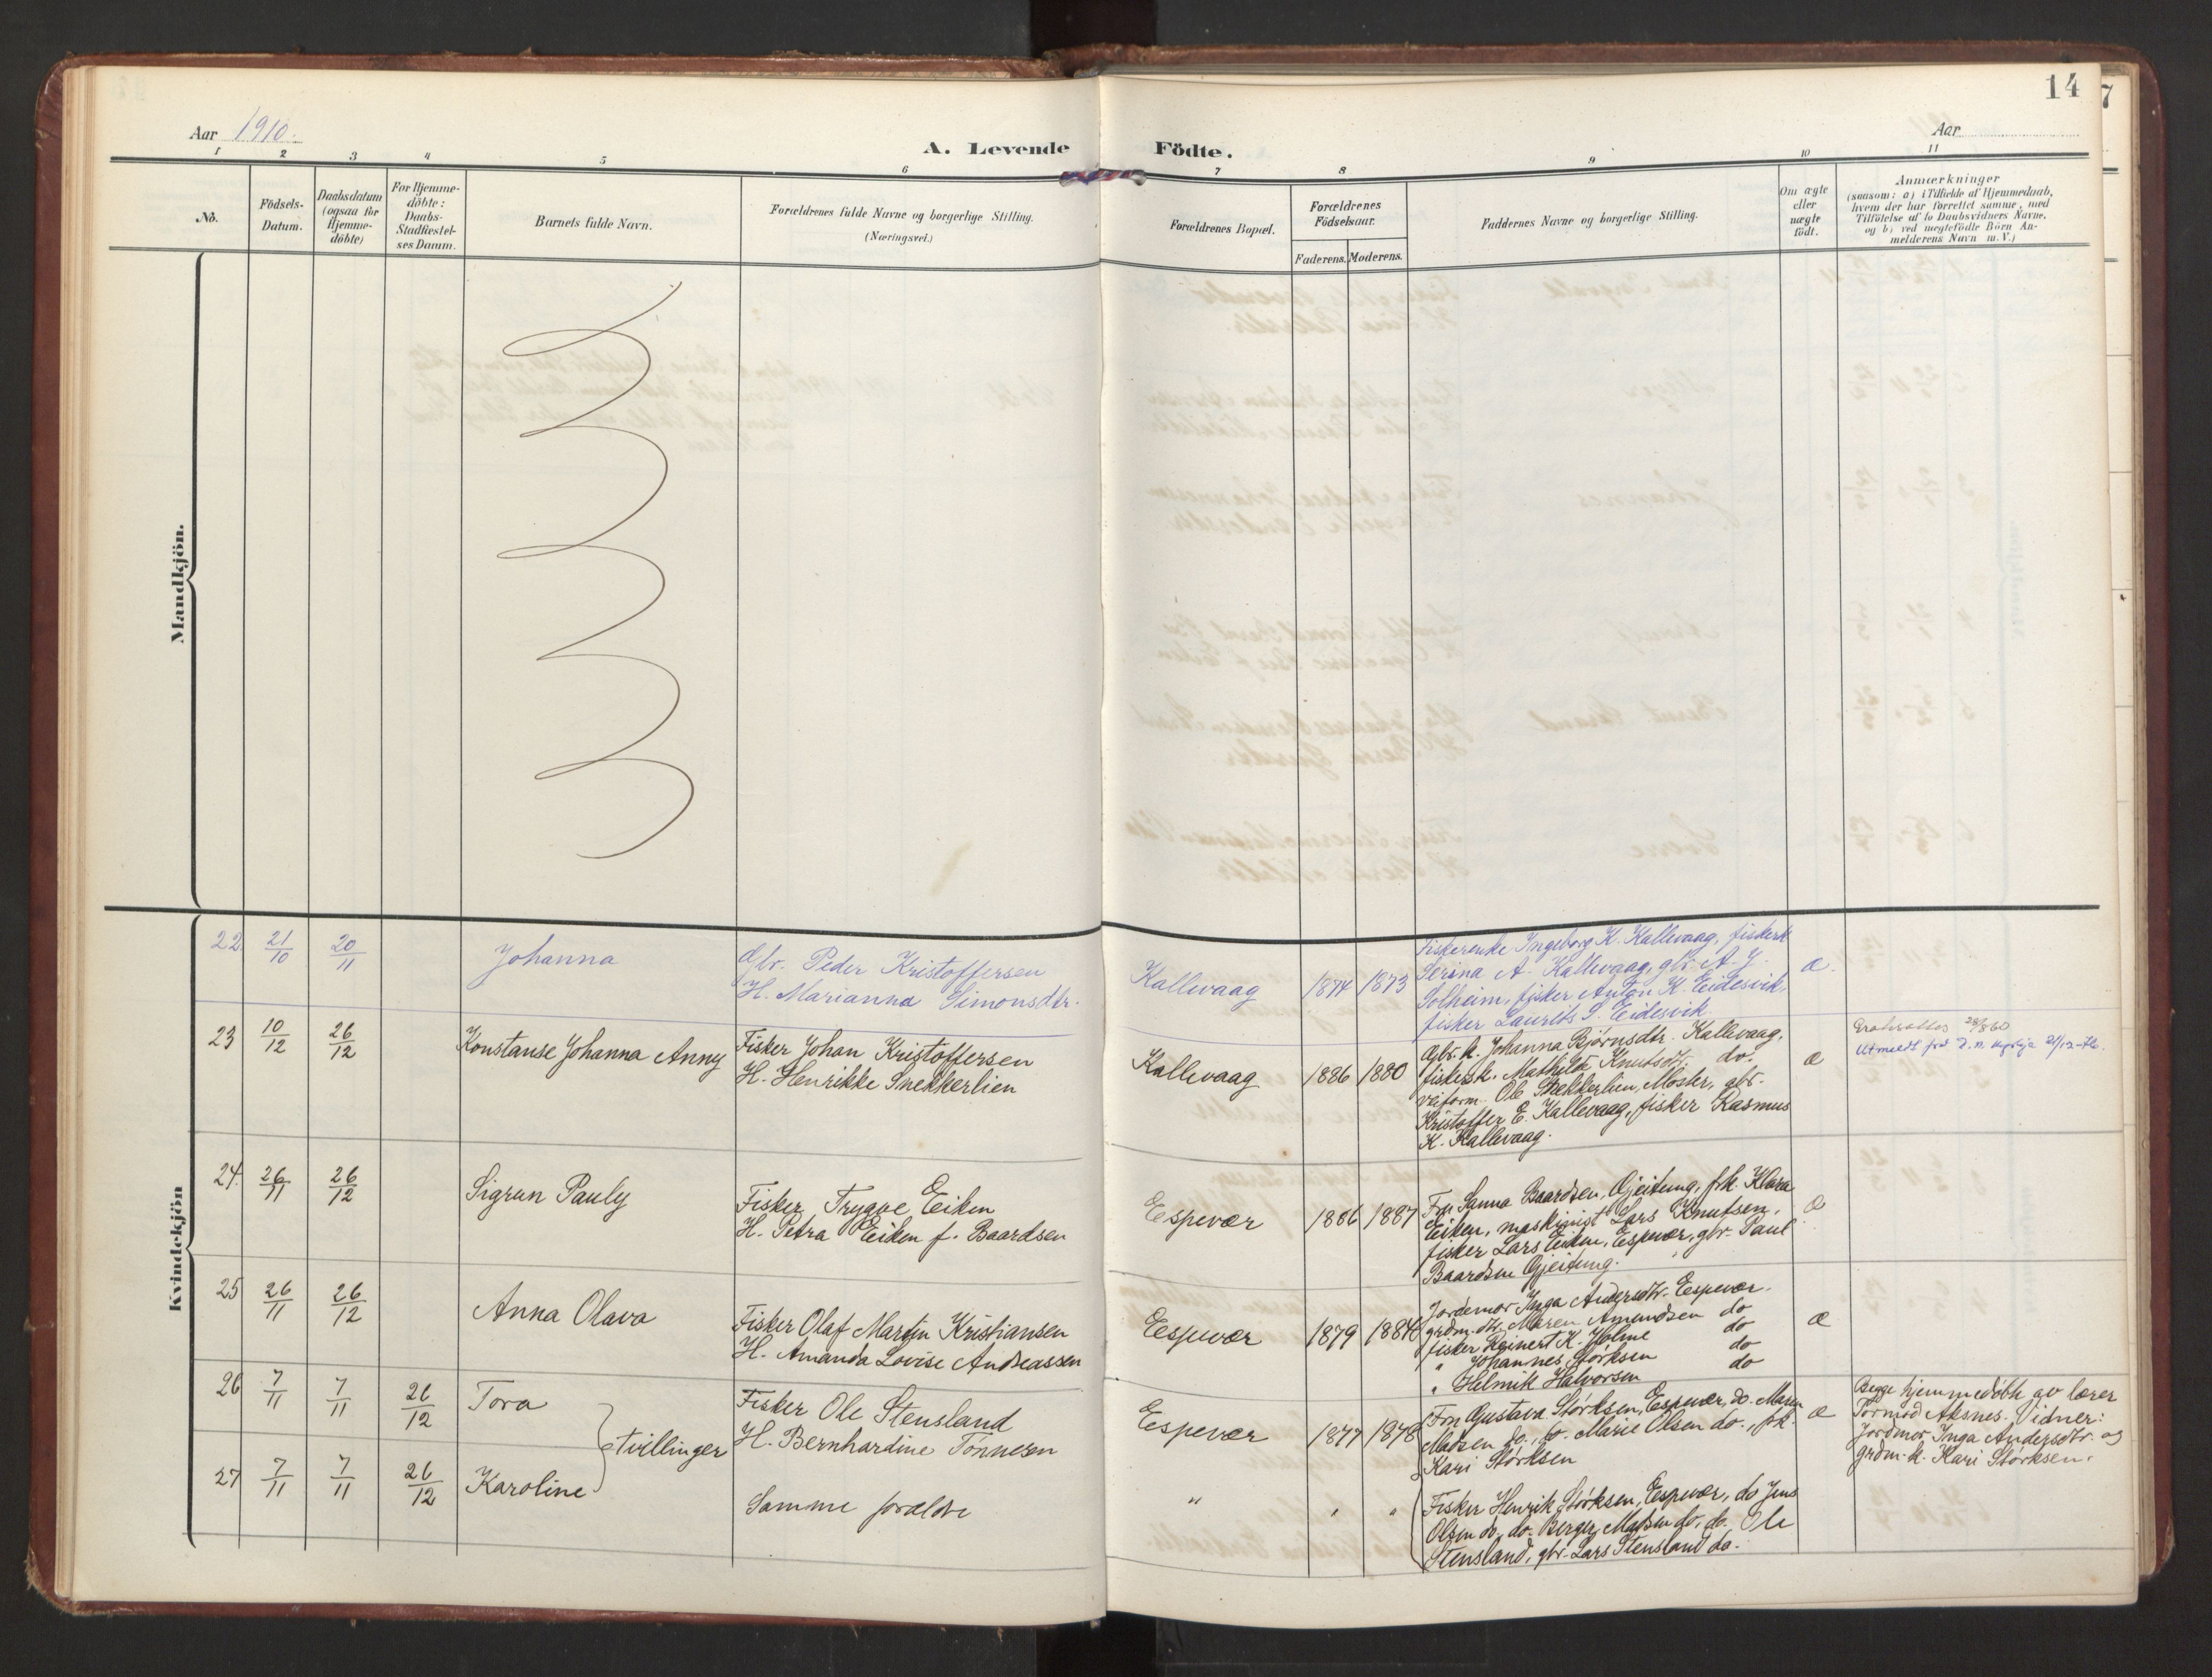 14
Aar 1910.
A. Levende Födte.
Aar
1 2 3 4 5 6 7 8 9 10 11
No.
Födsels-
Datum.
Daabsdatum
(ogsaa for
Hjemme-
döbte)
For Hjemme-
döbte:
Daabs-
Stadfæstel-
ses Datum.
Barnets fulde Navn.
Forældrenes fulde Navne og borgerlige Stilling.
(Næringsvei.)
Forældrenes Bopæl.
Forældrenes
Födselsaar.
Faderens. Moderens.
Faddernes Navne og borgerlige Stilling.
Om ægte
eller
uægte
födt.
Anmærkninger
(saasom: a) i Tilfælde af Hjemmedaab,
hvem der har forrettet samme, med
Tilföielse af to Daabsvidners Navne,
og b) ved uægtefödte Börn An-
melderens Navn m. V.)
Mandkjön.
Kvindekjön
22 21/10 20/11 Johanna
Gbr. Peder Kristoffersen
H. Marianna Simonsdtr.
Kallevaag 1874 1873
Fiskerenke Ingeborg K. Kallevaag, fiskerk
Serina A. Kallevaag, gbr. A. J.
Solheim, fisker Anton K. Eidesvik,
fisker Laurits S. Eidesvik.
æ.
23 10/12 26/12 Konstanse Johanna Anny
Fisker Johan Kristoffersen
H. Henrikke Snekkerlien
Kallevaag 1886 1880
Gbr. k. Johanna Bjørnsdtr. Kallevaag,
fiskerk. Mathilde Knutsdtr. do.
veiform. Ole Snekkerlien, Moster, gbr.
Kristoffer E. Kallevaag, fisker Rasmus
K. Kallevaag.
æ
28/8 60
Utmeldt fra D. n. kyrkja 21/12-76.
24. 26/11 26/12 Sigrun Pauly
Fisker Trygve Eiken
H. Petra Eiken f. Baardsen
Espevær 1886 1887
Fru Sanna Baardsen, Gjeitung, frk. Klara
Eiken, maskinist Lars Knutsen,
fisker Lars Eiken, Espevær, gbr. Paul
Baardsen Gjeitung.
æ
25 26/11 26/12 Anna Olava
Fisker Olaf Martin Kristiansen
H. Amanda Lovise Andreassen
Espevær 1879 1884
Jordemor Inga Andersdtr. Espevær.
grdm. dtr. Maren Amundsen do
fisker Reinert K. Holme do
" Johannes Størksen do
" Helmik Halvorsen do
æ
26 7/11 7/11 26/12 Tora
tvillinger
Fisker Ole Stensland
H. Bernhardine Tönnesen
Espevær 1877 1878
Fru Gustava Størksen, Espevær, do. Maren
Madsen do., do. Marie Olsen do., frk.
Kari Størksen
æ
Begge hjemmedøbte av lærer
Tormod Aksnes. Vidner:
Jordmor Inga Andersdtr. og
grdm. k. Kari Størksen.
27 7/11 7/11 26/12 Karoline
Samme forældre
" " "
Fisker Henrik Størksen, Espevær, do Jens
Olsen do, do. Berger Madsen do, do. Ole
Stensland, gbr. Lars Stensland do.